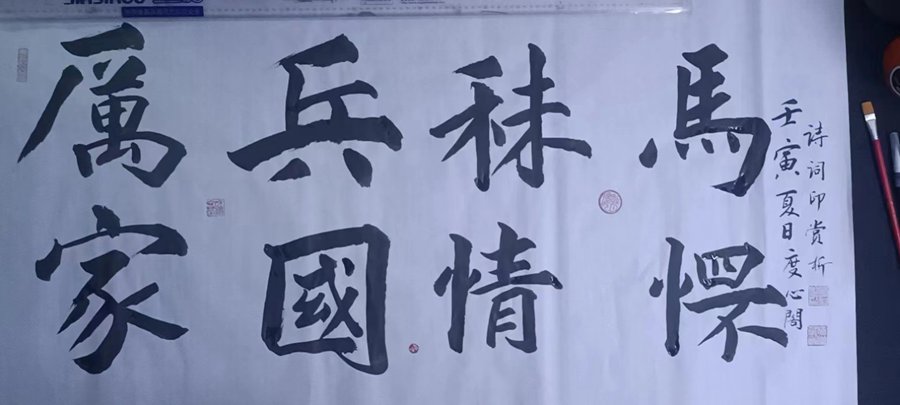 厲兵秣馬
家國情懷
壬寅夏日度心閣
詩詞印賞析